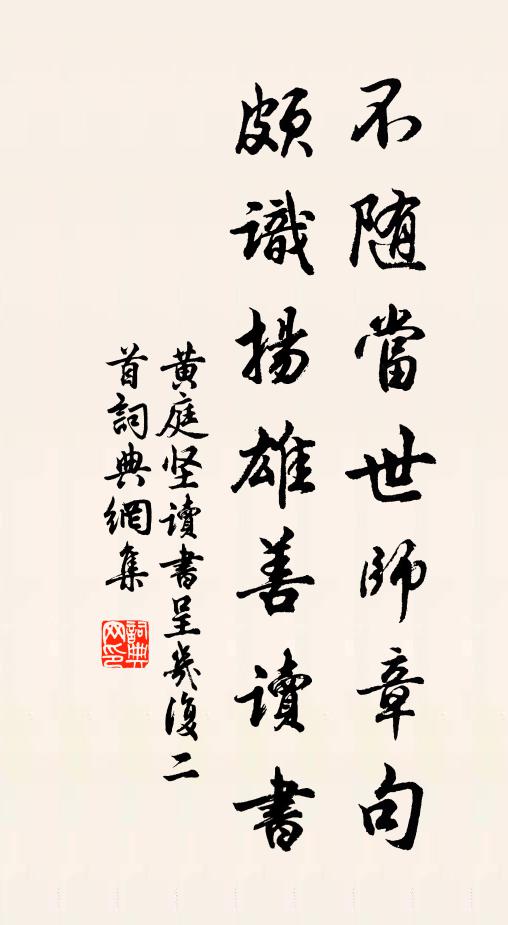 不随當世師章句
頗識揚雄善讀書
黄庭坚讀書呈幾復二
首詞典網集
詞典
网印